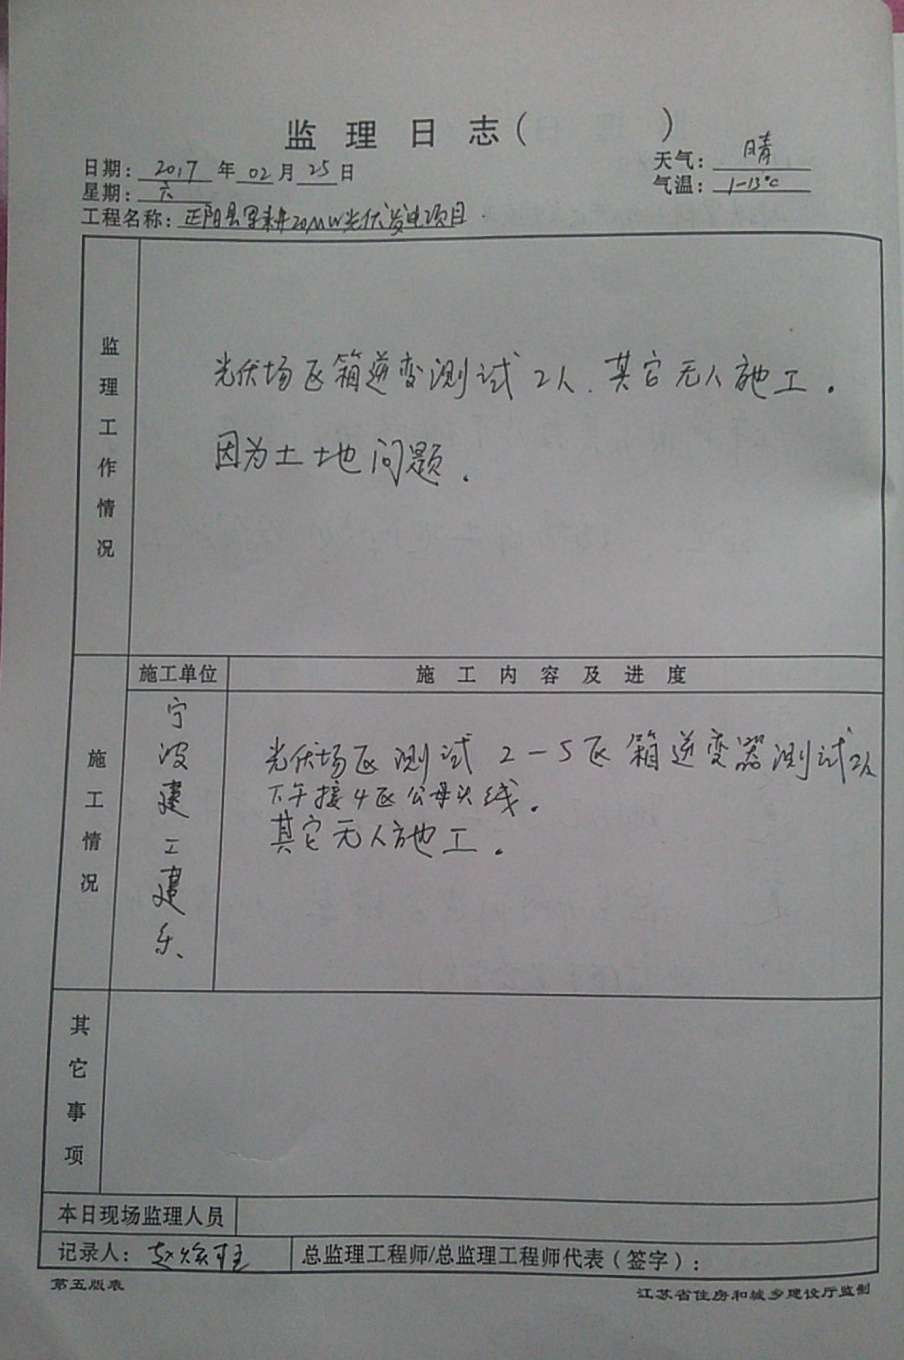 监理日志(    )
日期: 2017 年 02 月 25 日
天气: 晴
星期: 六
气温: 1-13°C
工程名称: 正阳县 20MW光伏发电项目
监理工作情况
光伏场区箱逆变测试2人.其它无人施工.
因为土地问题.
施工情况
施工单位
施工内容及进度
宁波建工建乐
光伏场区测试 2-5区箱逆变器测试2人
下午接4区公母头线.
其它无人施工.
其它事项
本日现场监理人员
记录人: 赵
总监理工程师/总监理工程师代表(签字):
第五版表
江苏省住房和城乡建设厅监制